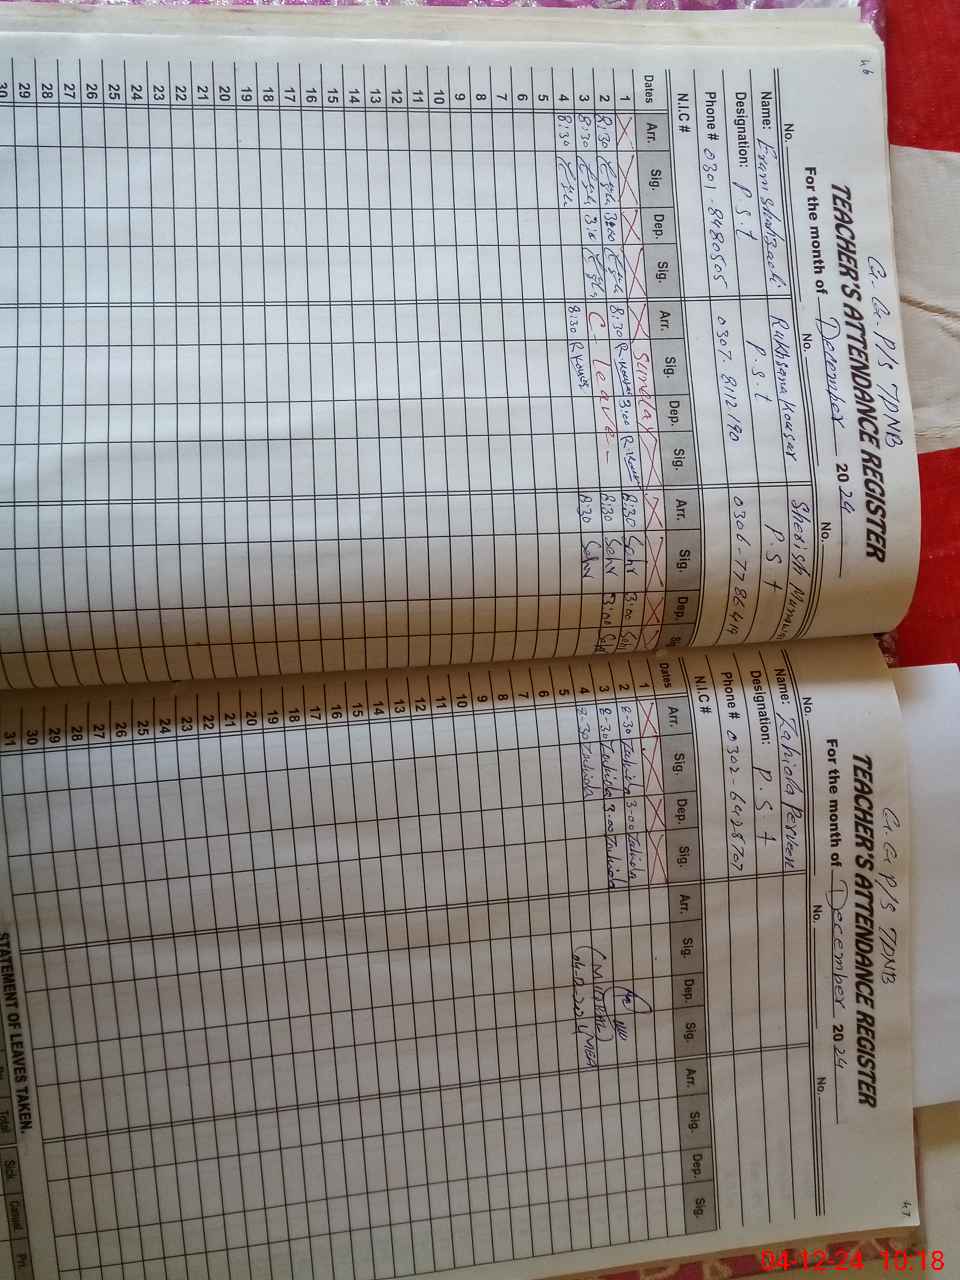 46
G. G. P/S TDNB
TEACHER'S ATTENDANCE REGISTER
For the month of December 2024
No. No. No.
Name: Erum Shahzadi Rukhsana Kousar Shehish
Designation: P.S.t P.S.t P.S t
Phone # 0301-8480505 0307-8112190 0306-7786419
N.I.C #
Dates Arr. Sig. Dep. Sig. Arr. Sig. Dep. Sig. Arr. Sig. Dep.
1 Sunday
2 8:30 3:00 8:30 R.Kousar 3:00 R.Kousar 8:30 Sehr 3:00 Sehr
3 8:30 3:00 C-Leave- 8:30 Sehr 3:00 Sehr
4 8:30 8:30 R.Kousar 8:30 Sehr
5
6
7
8
9
10
11
12
13
14
15
16
17
18
19
20
21
22
23
24
25
26
27
28
29
30
47
G. G P/S TDNB
TEACHER'S ATTENDANCE REGISTER
For the month of December 2024
No. No. No.
Name: Zahida Perveen
Designation: P.S.t
Phone # 0302-6428707
N.I.C #
Dates Arr. Sig. Dep. Sig. Arr. Sig. Dep. Sig. Arr. Sig. Dep. Sig.
1
2 8-30 Zahida 3-00 Zahida
3 8-30 Zahida 3-00 Zahida
4 8-30 Zahida
5
6
7
8
9
10
11
12
13
14
15
16
17
18
19
20
21
22
23
24
25
26
27
28
29
30
31
MEA
04-12-2024
STATEMENT OF LEAVES TAKEN.
Total Sick Casual
04-12-24 10:18